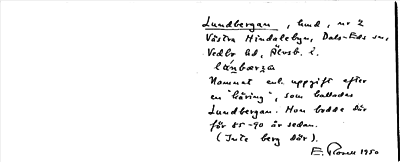 Lundbergan, lund, nr 2
Västra Hindalebyn, Dals-Eds sn,
Vedbo hd, Älvsb. l.
Namnet enl. uppgift efter
en "käring", som kallades
Lundbergan. Hon bodde där
för 85-90 år sedan.
(Inte berg där).
E. 1950